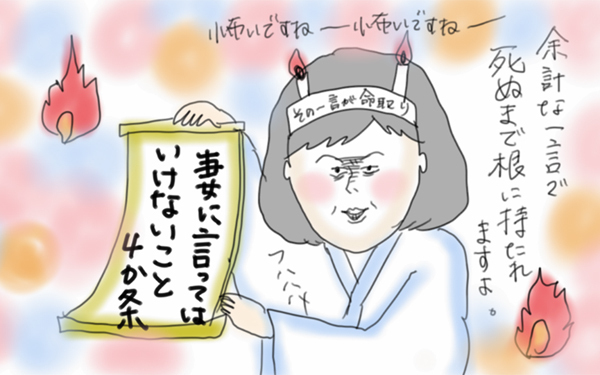 小布いですねー小布いですねー
余計な一言で
死ぬまで根に持たれ
ますよ。
その一言が命取り
妻に言っては
いけないこと
4か条
フハハハハ